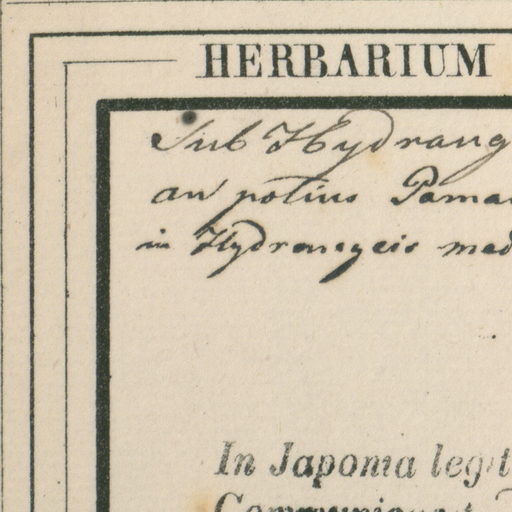 HERBARIUM
Sub Hydrang
an potius Pama
in Hydrangeis med
In Japonia legit
Communicavit